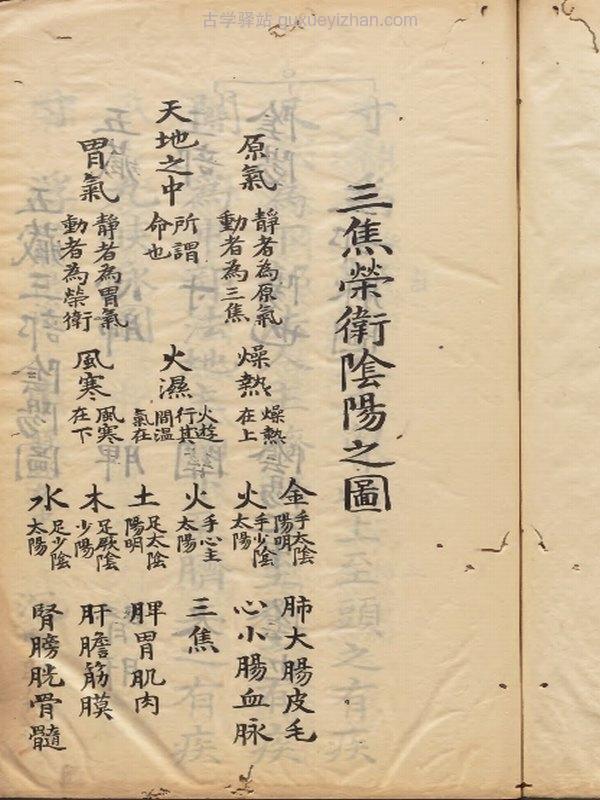 古学驿站 guxueyizhan.com
三焦榮衛陰陽之圖
原氣
靜者為原氣
動者為三焦
天地之中
所謂
命也
胃氣
靜者為胃氣
動者為榮衛
燥熱
燥熱
在上
火濕
火遊
行其
間温
氣在
風寒
風寒
在下
金
手太陰
陽明
火
手少陰
太陽
火
手心主
太陽
土
足太陰
陽明
木
足厥陰
少陽
水
足少陰
太陽
肺大腸皮毛
心小腸血脉
三焦
脾胃肌肉
肝膽筋膜
腎膀胱骨髓